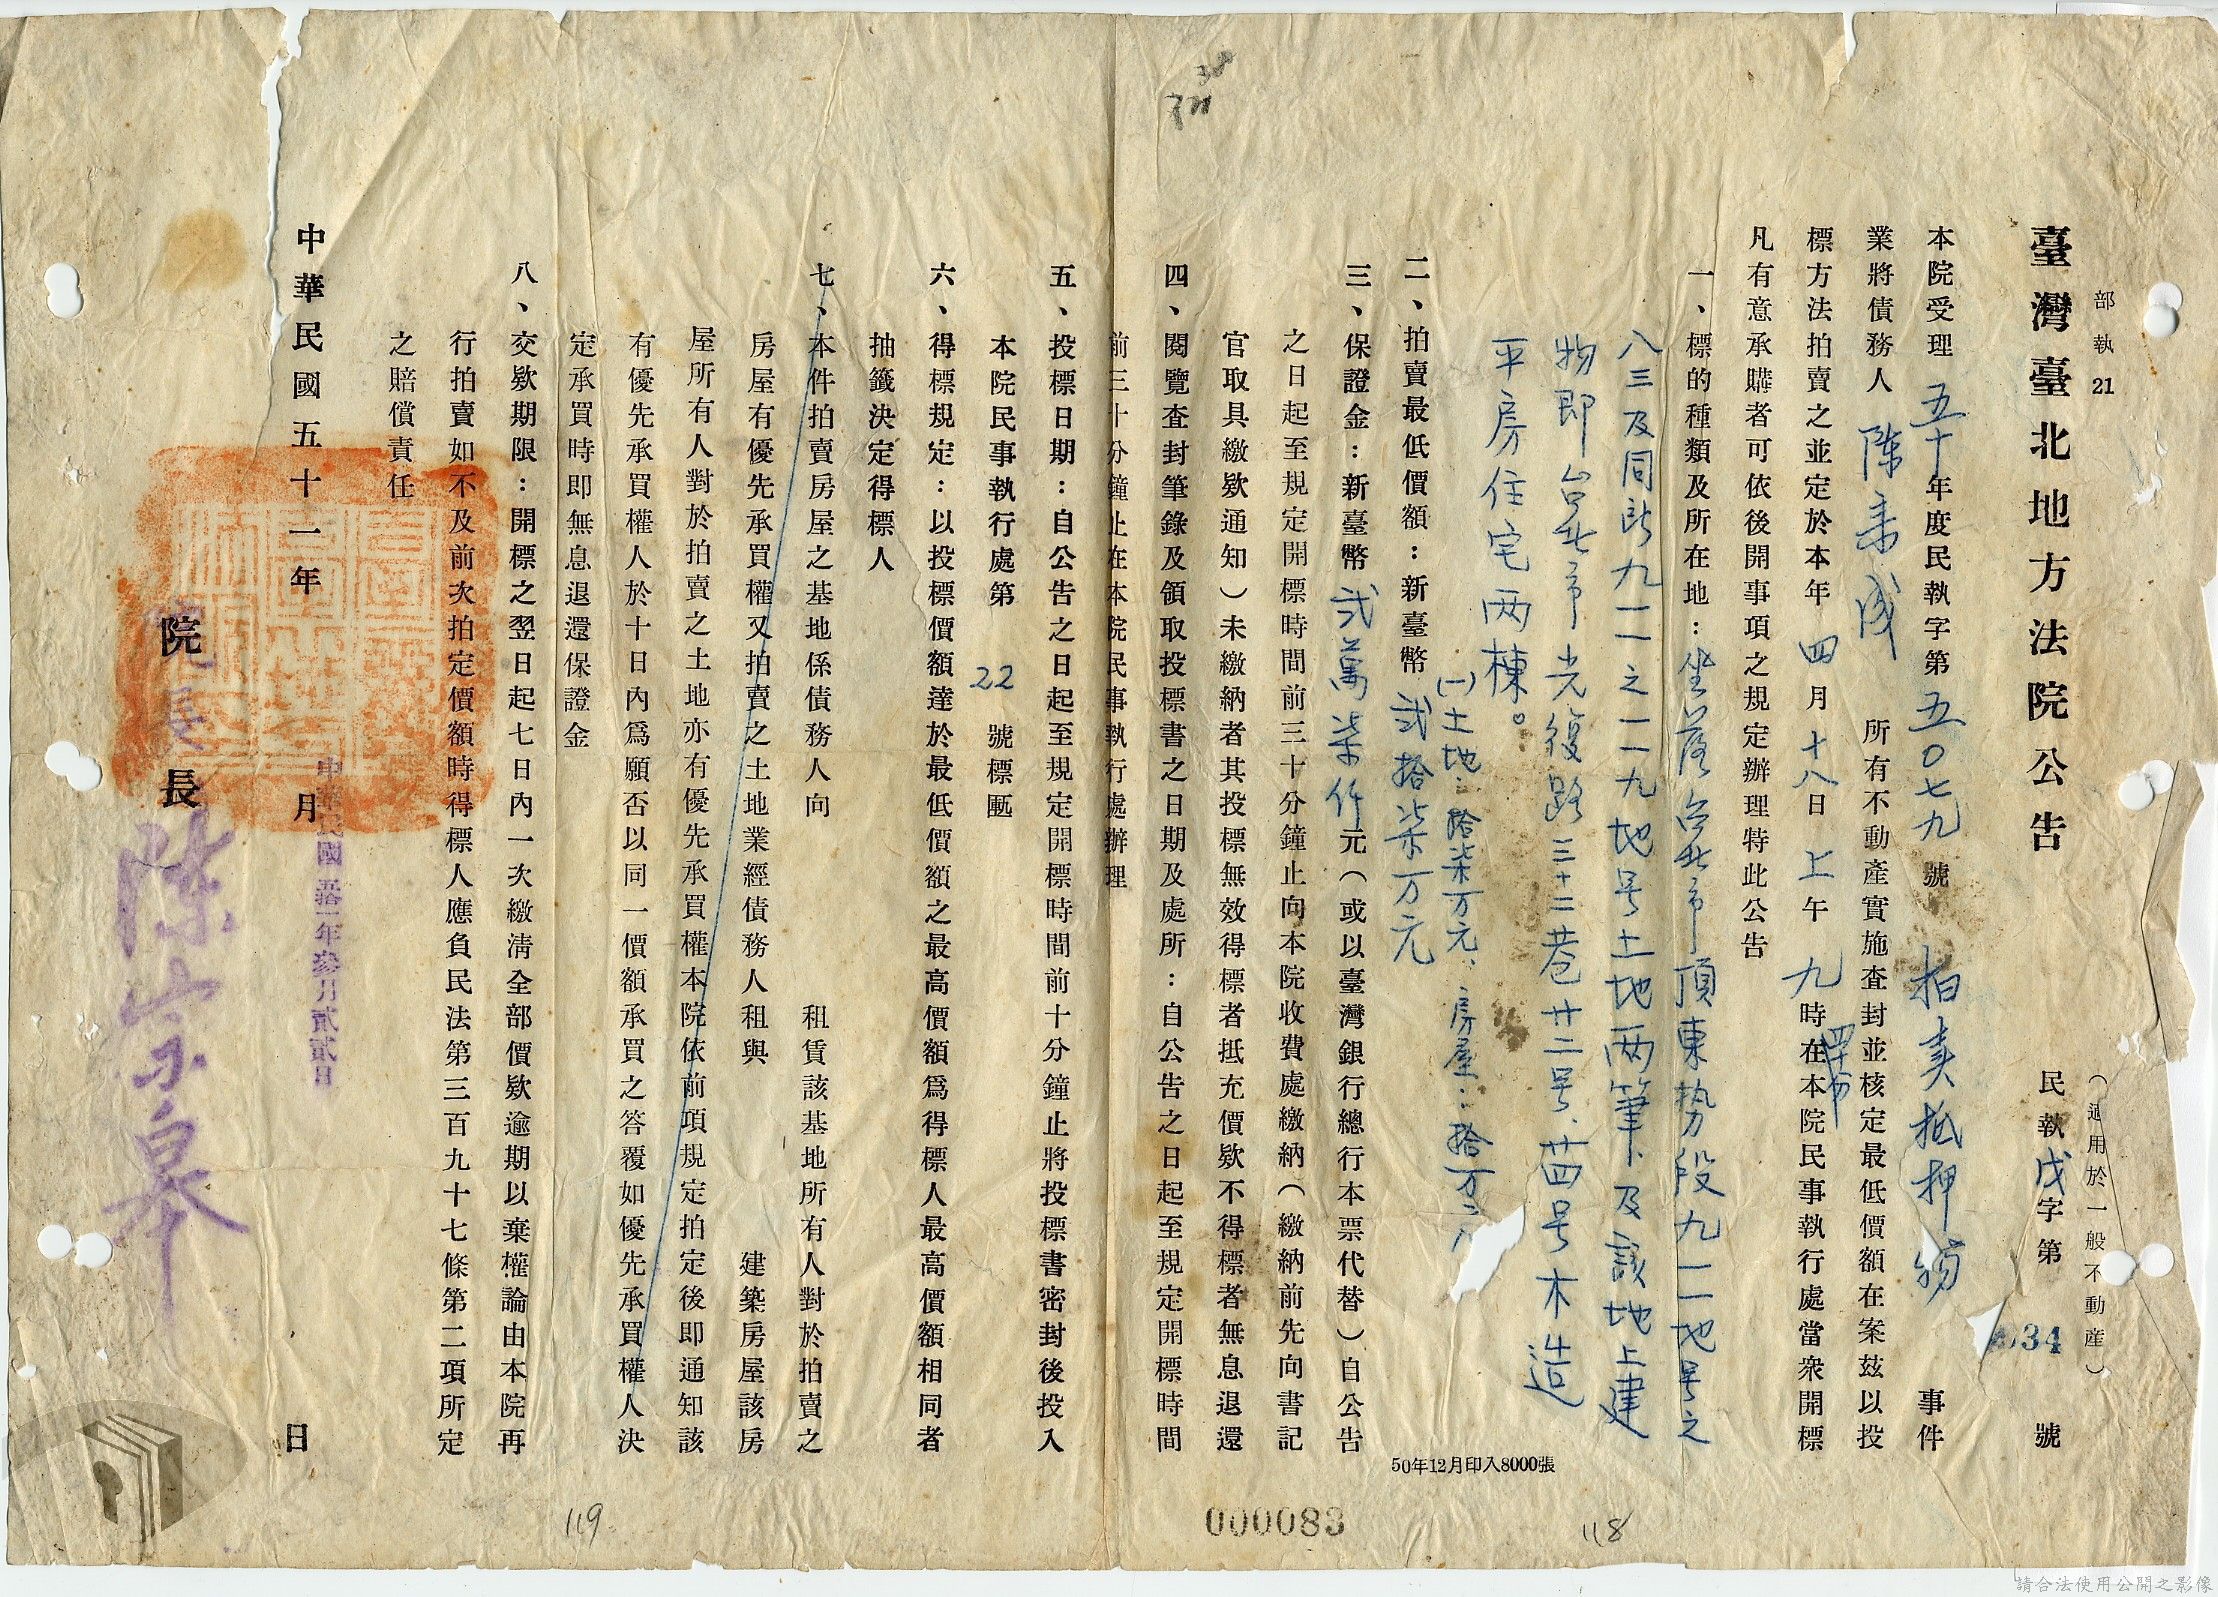 部執21
(適用於一般不動產)
臺灣臺北地方法院公告
民執戊字第 34 號
本院受理五十年度民執字第五〇七九號 拍卖抵押物 事件
業將債務人陳 所有不動產實施查封並核定最低價額在案茲以投
標方法拍賣之並定於本年四月十八日上午九時在本院民事執行處當衆開標
凡有意承購者可依後開事項之規定辦理特此公告
一、標的種類及所在地:坐落台北市頂東势段九一一地号之
八三及同所九一一之一一九地号土地两筆、及該地上建
物即台北市光復路三十二巷廿二号、廿四号木造
平房住宅两棟。
(一)土地:拾柒万元、房屋:拾万
二、拍賣最低價額:新臺幣 弍拾柒万元
三、保證金:新臺幣弍萬柒仟元(或以臺灣銀行總行本票代替)自公告
之日起至規定開標時間前三十分鐘止向本院收費處繳納(繳納前先向書記
官取具繳欵通知)未繳納者其投標無效得標者抵充價欵不得標者無息退還
四、閱覽查封筆錄及領取投標書之日期及處所:自公告之日起至規定開標時間
前三十分鐘止在本院民事執行處辦理
五、投標日期:自公告之日起至規定開標時間前十分鐘止將投標書密封後投入
本院民事執行處第 22 號標匭
六、得標規定:以投標價額達於最低價額之最高價額爲得標人最高價額相同者
抽籤決定得標人
七、本件拍賣房屋之基地係債務人向 租賃該基地所有人對於拍賣之
房屋有優先承買權又拍賣之土地業經債務人租與 建築房屋該房
屋所有人對於拍賣之土地亦有優先承買權本院依前項規定拍定後即通知該
有優先承買權人於十日內爲願否以同一價額承買之答覆如優先承買權人決
定承買時即無息退還保證金
八、交欵期限:開標之翌日起七日內一次繳清全部價欵逾期以棄權論由本院再
行拍賣如不及前次拍定價額時得標人應負民法第三百九十七條第二項所定
之賠償責任
中華民國五十一年 月 日
中華民國五拾一年參月貳貳日
院長
院長 陳宗皋
50年12月印入8000張
118
000083
119
請合法使用公開之影像